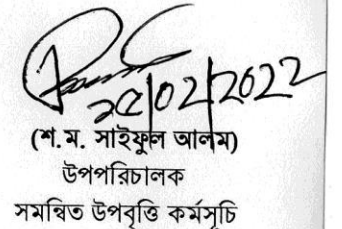 ২৫/02/2022
(শ. ম. সাইফুল আলম)
উপপরিচালক
সমন্বিত উপবৃত্তি কর্মসূচি